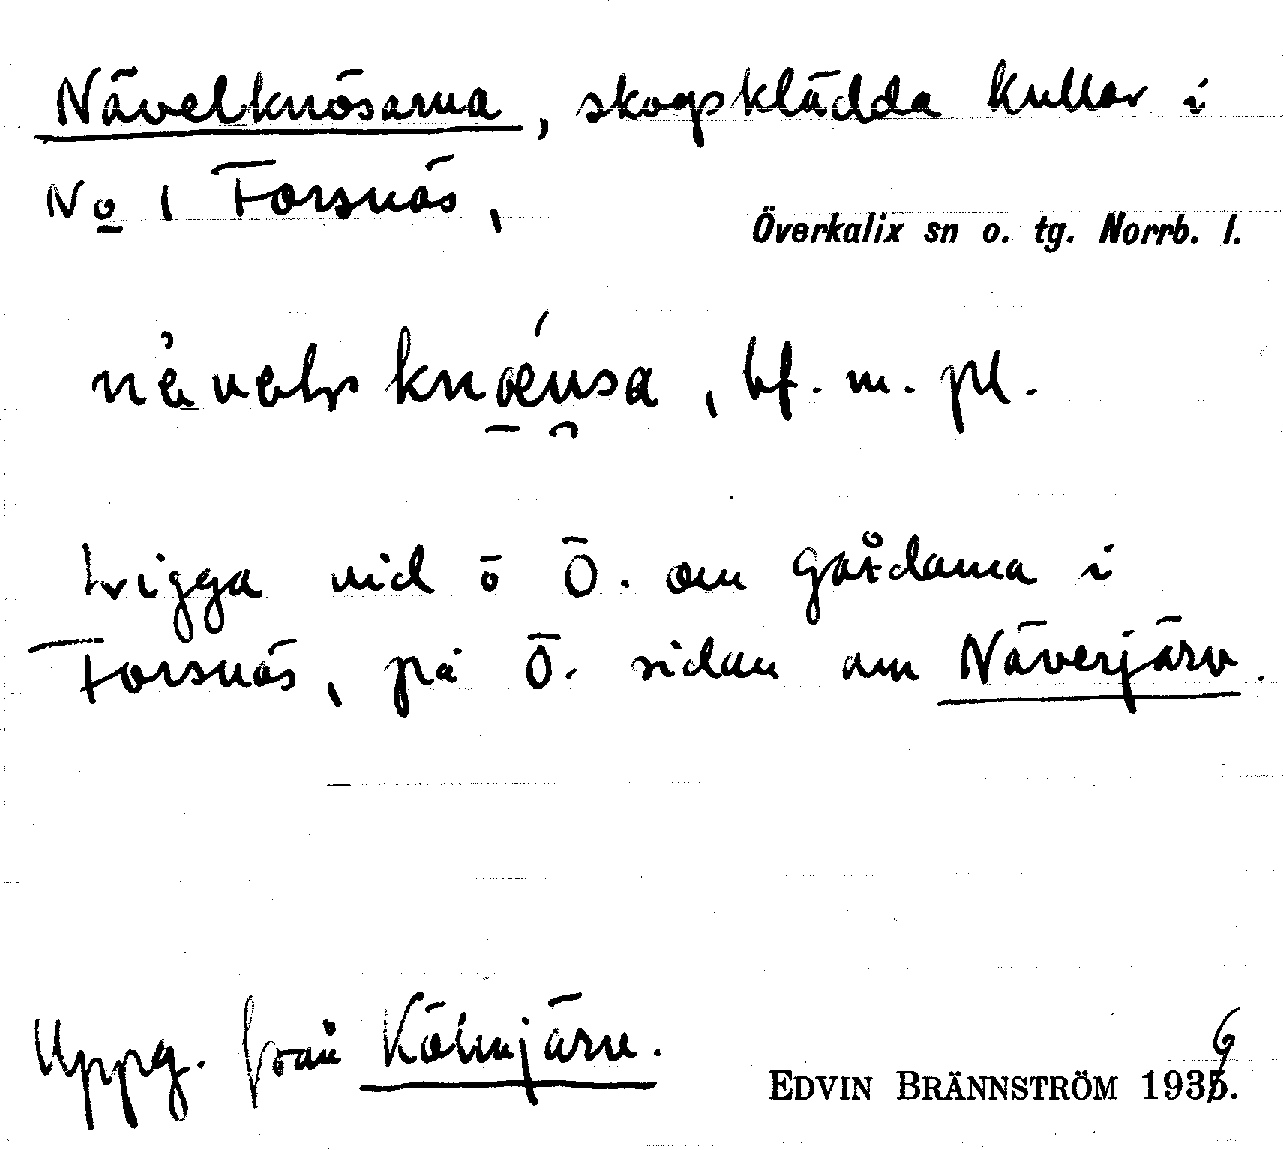 Nävelknösarna, skogsklädda kullar i
No 1 Forsnäs,
Överkalix sn o. tg. Norrb. l.
bf. m. pl.
Ligga vid ö Ö. om gårdarna i
Forsnäs, på Ö. sidan om Näverjärv.
Uppg. från Kölmjärv.
EDVIN BRÄNNSTRÖM 1936.